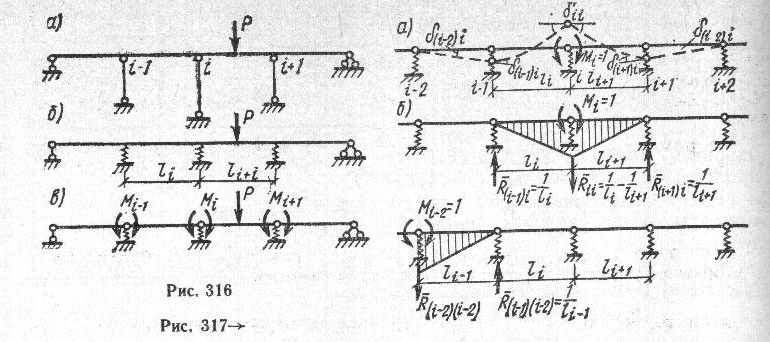 а)
P
i-1
i
i+1
б)
P
lᵢ
lᵢ₊ᵢ
в)
Mᵢ₋₁
Mᵢ
P
Mᵢ₊₁
Рис. 316
Рис. 317→
а)
δᵢᵢ
δ₍ᵢ₋₂₎ᵢ
Mᵢ=1
δ₍ᵢ₋₂₎ᵢ
δ₍ᵢ₋₁₎ᵢ
δ₍ᵢ₊₁₎ᵢ
i-2
i-1
lᵢ
i
lᵢ₊₁
i+1
i+2
б)
Mᵢ=1
lᵢ
lᵢ₊₁
R̄₍ᵢ₋₁₎ᵢ=1/lᵢ
R̄ᵢᵢ=1/lᵢ-1/lᵢ₊₁
R̄₍ᵢ₊₁₎ᵢ=1/lᵢ₊₁
Mᵢ₋₂=1
lᵢ₋₁
lᵢ
lᵢ₊₁
R̄₍ᵢ₋₂₎₍ᵢ₋₂₎
R̄₍ᵢ₋₁₎₍ᵢ₋₂₎=1/lᵢ₋₁